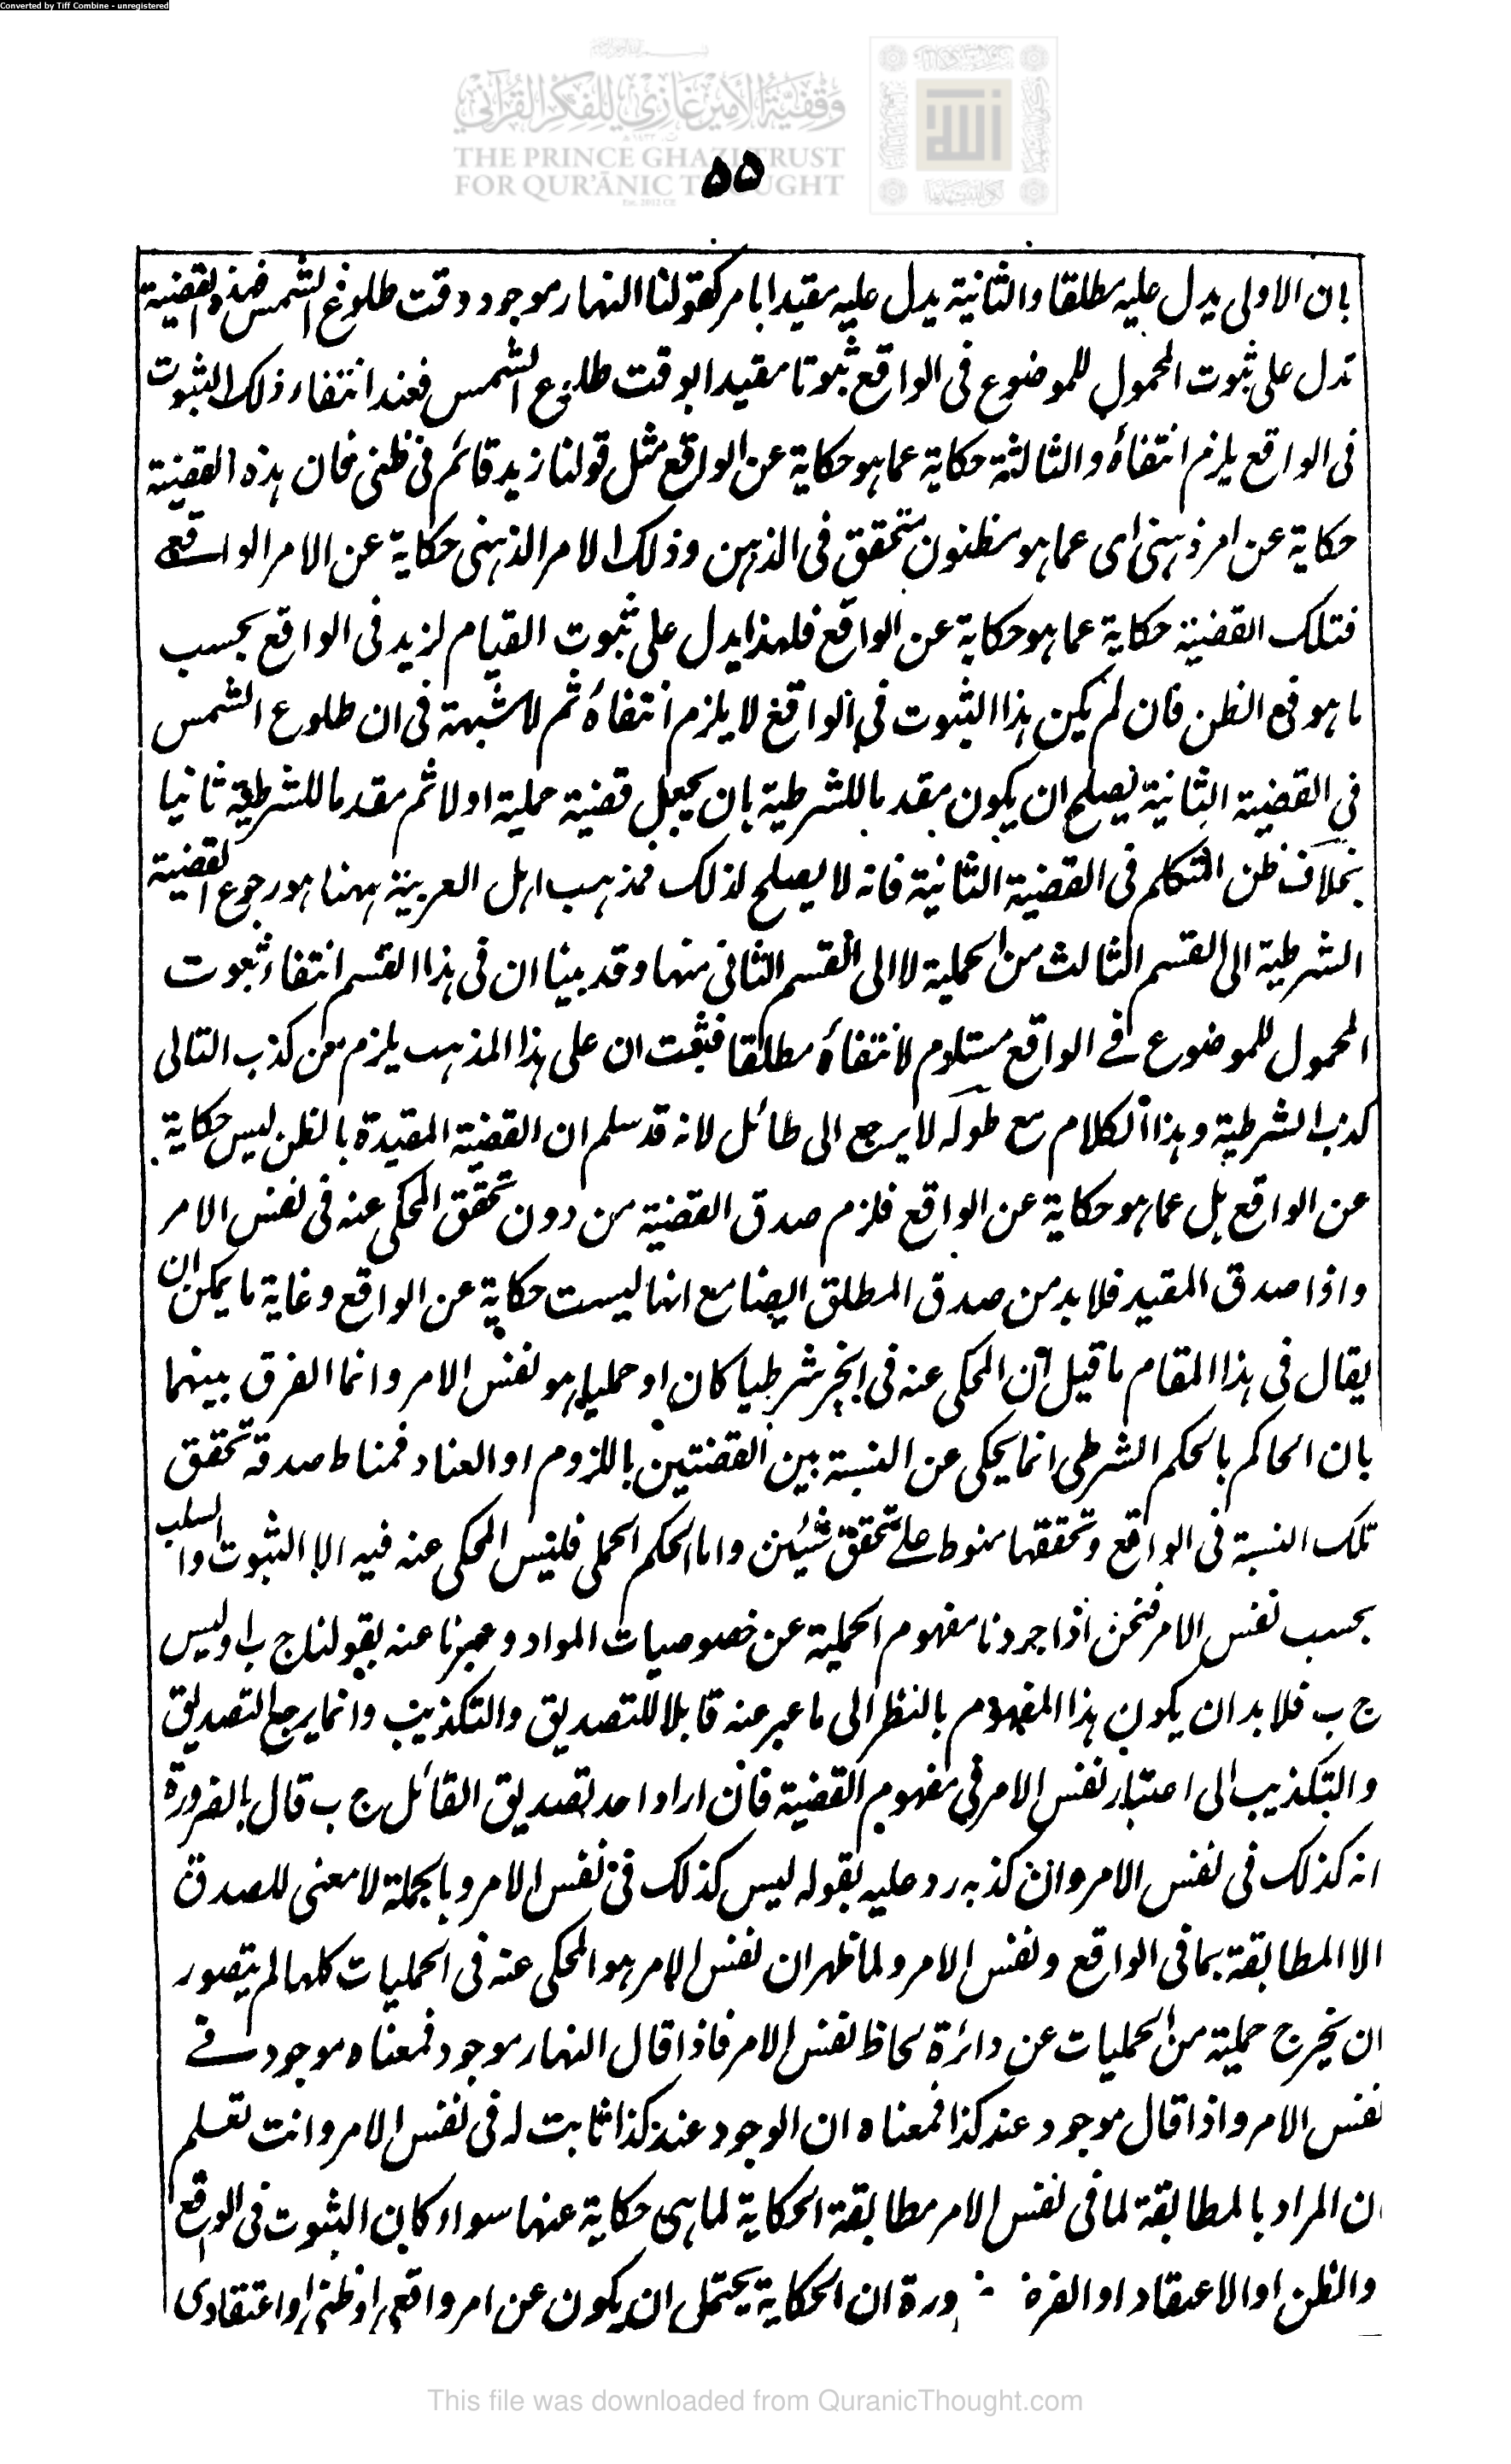 Converted by Tiff Combine - unregistered
وقفية الأمير غازي للفكر القرآني
THE PRINCE GHAZI TRUST
FOR QUR'ĀNIC THOUGHT
۵۵
بان الاولى يدل عليه مطلقا والثانية يدل عليه مقيدا بامر كقولنا النهار موجود وقت طلوع الشمس فهذه القضية
تدل على ثبوت المحمول للموضوع فى الواقع ثبوتا مقيدا بوقت طلوع الشمس فعند انتفاء ذلك الثبوت
فى الواقع يلزم انتفاؤه والثالثة حكاية عما هو حكاية عن الواقع مثل قولنا زيد قائم فى ظنى فان هذه القضية
حكاية عن امر ذهنى اى عما هو مظنون متحقق فى الذهن وذلك الامر الذهنى حكاية عن الامر الواقعى
فتلك القضية حكاية عما هو حكاية عن الواقع فلهذا يدل على ثبوت القيام لزيد فى الواقع بحسب
ما هو فى الظن فان لم يكن هذا الثبوت فى الواقع لا يلزم انتفاؤه ثم لا شبهة فى ان طلوع الشمس
فى القضية الثانية يصلح ان يكون مقدما للشرطية بان يجعل قضية حملية اولا ثم مقدما للشرطية ثانيا
بخلاف ظن المتكلم فى القضية الثانية فانه لا يصلح لذلك فمذهب اهل العربية ههنا هو رجوع القضية
الشرطية الى القسم الثالث من الحملية لا الى القسم الثانى منها وقد بينا ان فى هذا القسم انتفاء ثبوت
المحمول للموضوع فى الواقع مستلزم لانتفاؤه مطلقا فثبت ان على هذا المذهب يلزم من كذب التالى
كذب الشرطية وهذا الكلام مع طوله لا يرجع الى طائل لانه قد سلم ان القضية المقيدة بالظن ليس حكاية
عن الواقع بل عما هو حكاية عن الواقع فلزم صدق القضية من دون تحقق المحكى عنه فى نفس الامر
واذا صدق المقيد فلا بد من صدق المطلق ايضا مع انها ليست حكاية عن الواقع وغاية ما يمكن ان
يقال فى هذا المقام ما قيل ان المحكى عنه فى الخبر شرطيا كان او حمليا هو نفس الامر وانما الفرق بينهما
بان الحاكم بالحكم الشرطى انما يحكى عن النسبة بين القضتين باللزوم او العناد فمناط صدقه تحقق
تلك النسبة فى الواقع وتحققها منوط على تحقق شيئين واما الحكم الحملى فليس المحكى عنه فيه الا الثبوت والسلب
بحسب نفس الامر فنحن اذا جردنا مفهوم الحملية عن خصوصيات المواد وعبرنا عنه بقولنا ج ب او ليس
ج ب فلا بد ان يكون هذا المفهوم بالنظر الى ما عبر عنه قابلا للتصديق والتكذيب وانما يرجع التصديق
والتكذيب الى اعتبار نفس الامر فى مفهوم القضية فان اراد احد تصديق القائل ج ب قال بالضرورة
انه كذلك فى نفس الامر وان كذبه رد عليه بقوله ليس كذلك فى نفس الامر وبالجملة لا معنى للصدق
الا المطابقة بما فى الواقع ونفس الامر ولما ظهر ان نفس الامر هو المحكى عنه فى الحمليات كلها لم يتصور
ان يخرج حملية من الحمليات عن دائرة لحاظ نفس الامر فاذا قال النهار موجود فمعناه موجود فى
نفس الامر واذا قال موجود عند كذا فمعناه ان الوجود عند كذا ثابت له فى نفس الامر وانت تعلم
ان المراد بالمطابقة لما فى نفس الامر مطابقة الحكاية لما هى حكاية عنها سواء كان الثبوت فى الواقع
والظن او الاعتقاد او الفرض ضرورة ان الحكاية يحتمل ان يكون عن امر واقعى او ظنى او اعتقادى
This file was downloaded from QuranicThought.com